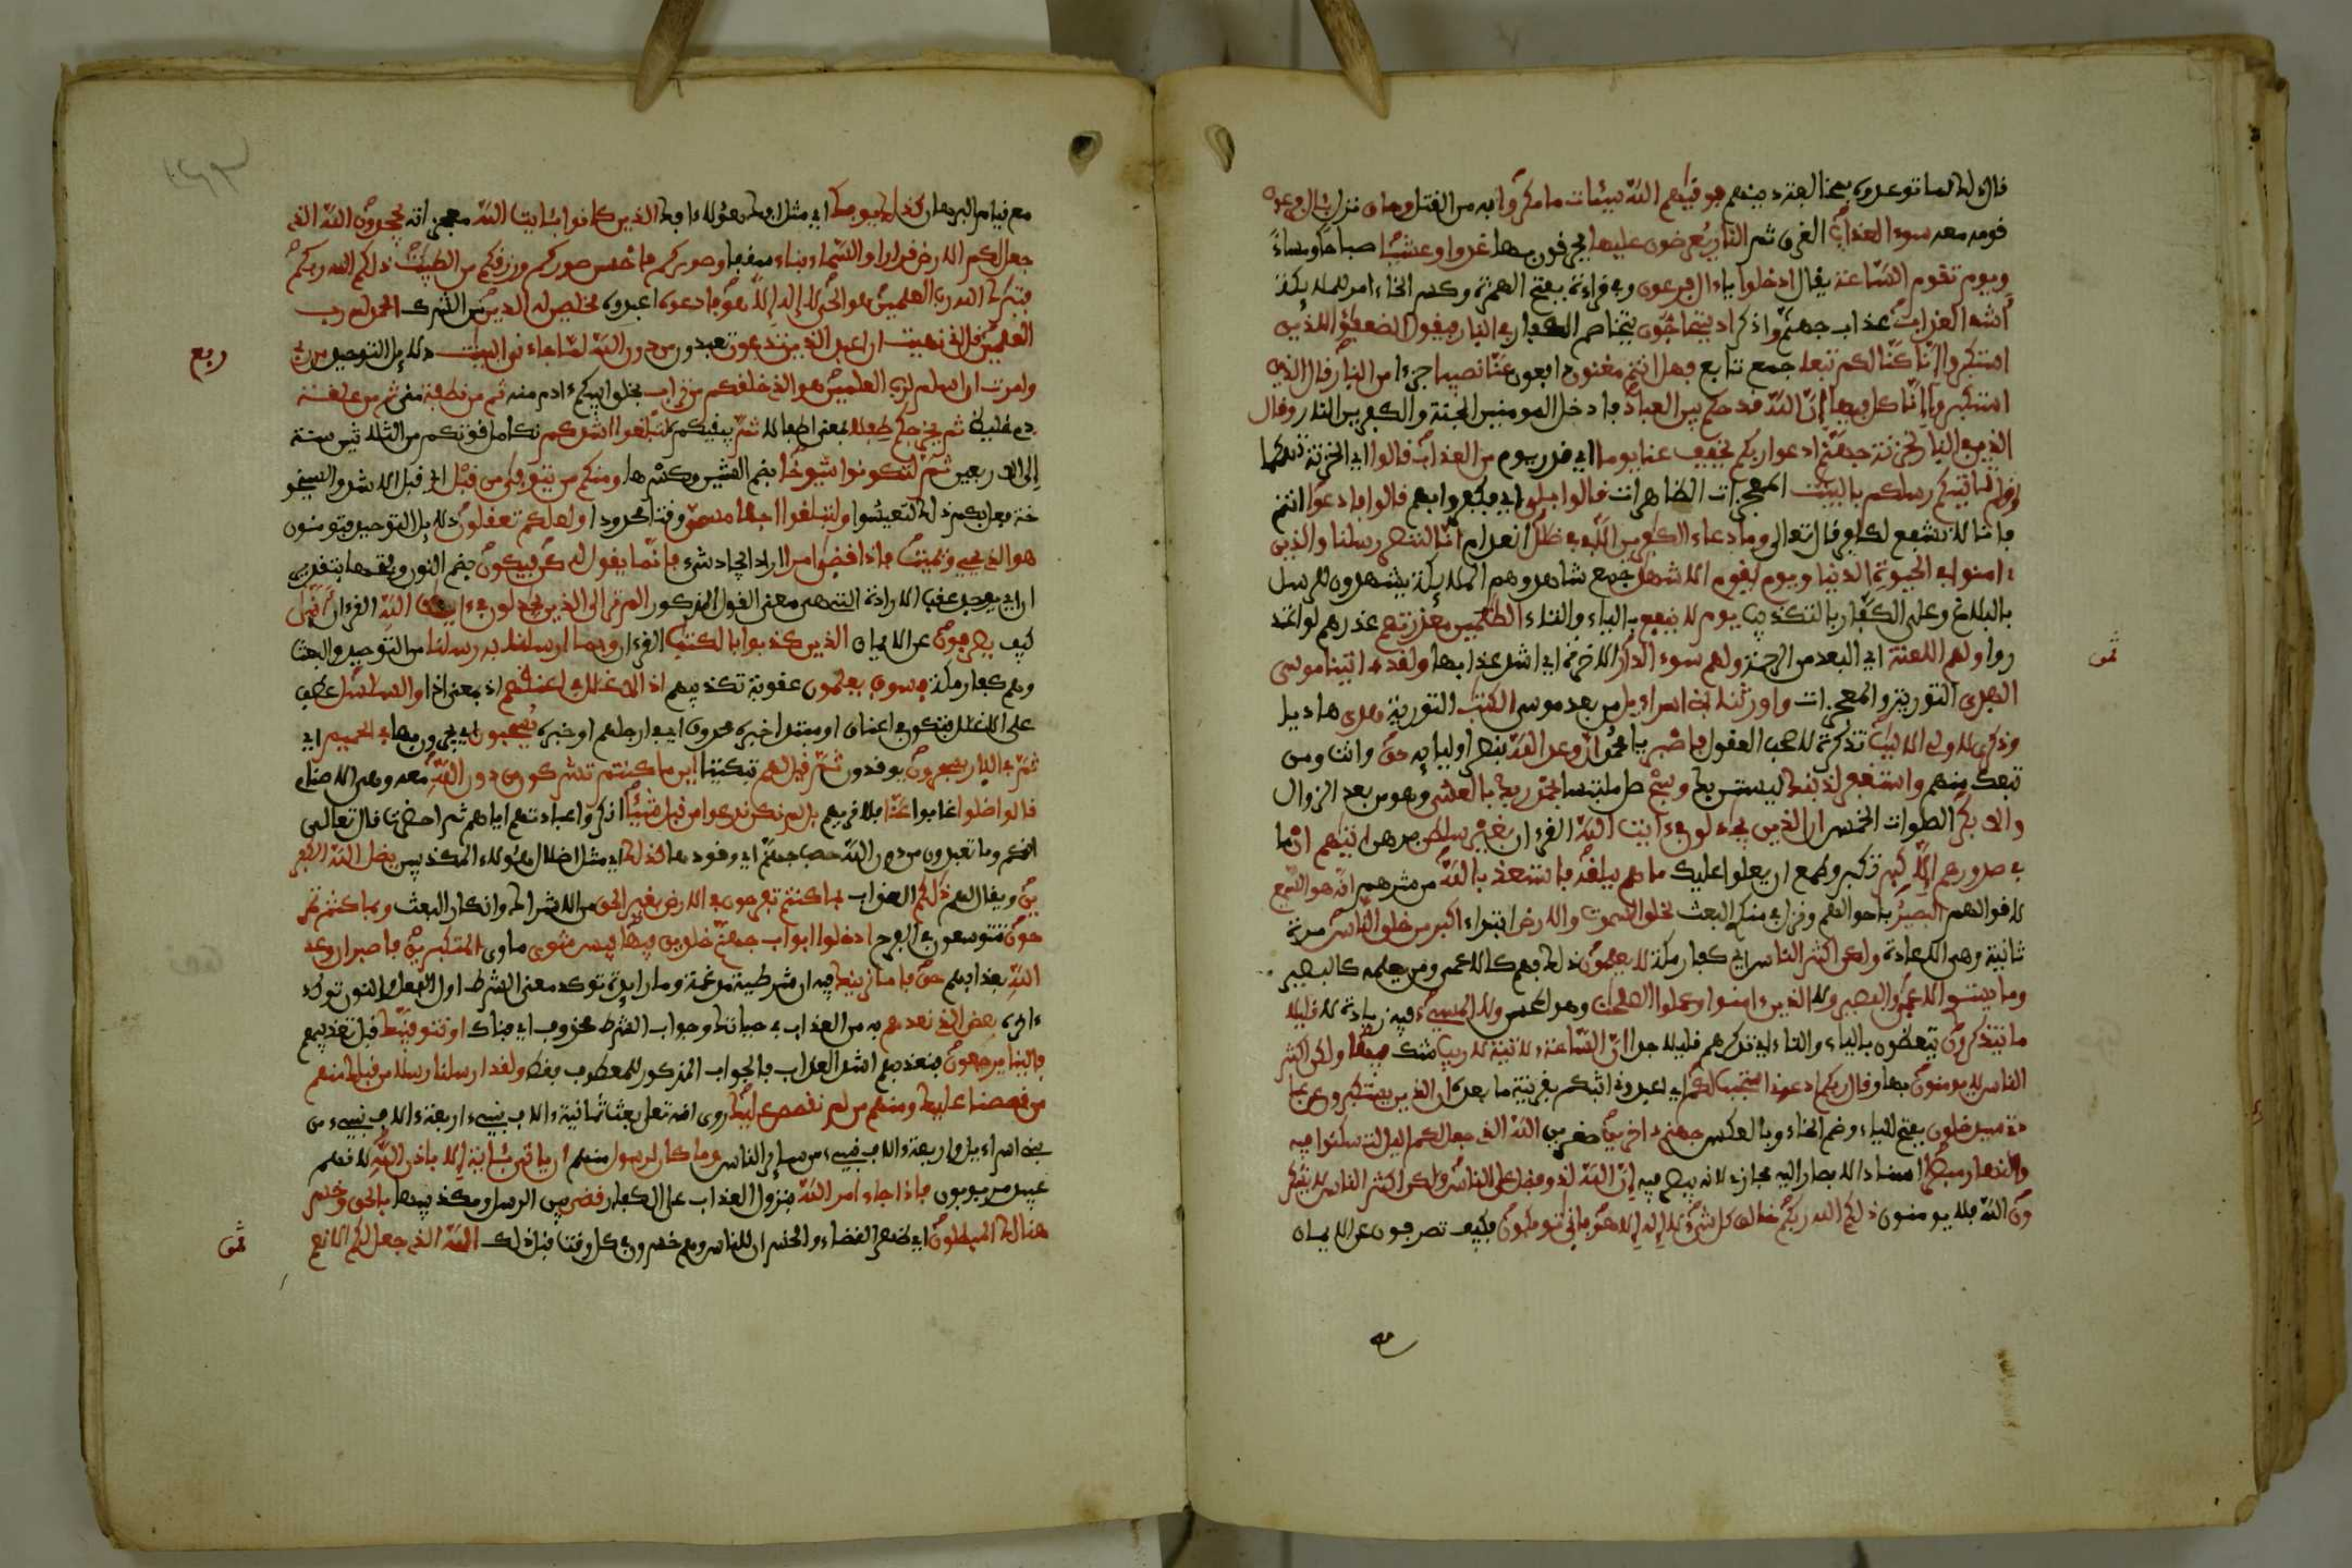 قال ذلك لما توعدوه بمخالفته دينهم فوقيه الله سيئات ما مكروا به من القتل وحاق نزل بئال فرعون
قومه معه سوء العذاب الغرق ثم النار يعرضون عليها يحرقون بها غدوا وعشيا صباحا ومساء
ويوم تقوم الساعة يقال ادخلوا ياءال فرعون وفي قراءة بفتح الهمزة وكسر الخاء امر للملايكة
أشد العذاب عذاب جهنم واذكر اذ يتحاجون يتخاصم الكفار في النار فيقول الضعفؤا للذين
استكبروا إنا كنا لكم تبعا جمع تابع فهل انتم مغنون دافعون عنا نصيبا جزءا من النار قال الذين
استكبروا إنا كل فيها إن الله قد حكم بين العباد فادخل المومنين الجنة والكفرين النار وقال
الذين في النار لخزنة جهنم ادعوا ربكم يخفف عنا يوما اي قدر يوم من العذاب قالوا اي الخزنة تهكما
اولم تاتيكم رسلكم بالبينت المعجزات الظاهرات قالوا بلى اي فكفروا بهم قالوا فادعوا انتم
فانا لا نشفع لكافر قال تعالى وما دعاء الكفرين إلا في ضلل انعدام انا لننصر رسلنا والذين
ءامنوا في الحيوة الدنيا ويوم يقوم الاشهد جمع شاهد وهم الملايكة يشهدون للرسل
بالبلاغ وعلى الكفار بالتكذيب يوم لا ينفع بالياء والتاء الظلمين معذرتهم عذرهم لو اعتذ
روا ولهم اللعنة اي البعد من الرحمة ولهم سوء الدار الاخرة اي اشد عذابها ولقد ءاتينا موسى
الهدى التورية والمعجزات واورثنا بني اسراءيل من بعد موسى الكتب التورية هدى هاديا
وذكرى لاولي الالبب تذكرة لاصحب العقول فاصبر يا محمد ان وعد الله بنصر اوليايه حق وانت ومن
تبعك منهم واستغفر لذنبك ليستن بك وسبح صل ملتبسا بحمد ربك بالعشي وهو من بعد الزوال
والابكر الصلوات الخمس ان الذين يجدلون في ءايت الله القرءان بغير سلطن برهان اتيهم ان ما
في صدورهم إلا كبر تكبر وطمع ان يعلوا عليك ما هم ببلغيه فاستعذ بالله من شرهم انه هو السميع
لاقوالهم البصير باحوالهم ونزل في منكري البعث لخلق السموت والارض ابتداء اكبر من خلق الناس مرة
ثانية وهي الاعادة ولكن اكثر الناس اي كفار مكة لا يعلمون ذلك فهم كالاعمى ومن يعلمه كالبصير
وما يستوي الاعمى والبصير ولا الذين ءامنوا وعملوا الصلحت وهو المحسن ولا المسيء فيه زيادة لا قليلا
ما تتذكرون يتعظون بالياء والتاء اي تذكرهم قليل جدا ان الساعة ءلاتية لا ريب شك فيها ولكن اكثر
الناس لا يومنون بها وقال ربكم ادعوني استجب لكم اي اعبدوني اثبكم بقرينة ما بعده ان الذين يستكبرون عن عبا
دتي سيدخلون بفتح الياء وضم الخاء وبالعكس جهنم داخرين صغرين الله الذي جعل لكم اليل لتسكنوا فيه
والنهار مبصرا اسناد الابصار اليه مجازي لانه يبصر فيه إن الله لذو فضل على الناس ولكن اكثر الناس لا يشكر
ون الله فلا يومنون ذلكم الله ربكم خلق كل شيء لا إله إلا هو فانى توفكون فكيف تصرفون عن الايمان
ثمن
مع قيام البرهان كذلك يوفك اي مثل افك هؤلاء افك الذين كانوا بئايت الله معجزاته يجحدون الله الذي
جعل لكم الارض قرارا والسماء بناء سقفا وصوركم فاحسن صوركم ورزقكم من الطيبت ذلكم الله ربكم
فتبرك الله رب العلمين هو الحي لا إله إلا هو فادعوه اعبدوه مخلصين له الدين من الشرك الحمد لله رب
العلمين قل اني نهيت ان اعبد الذين تدعون تعبدون من دون الله لما جاءني البينت دلايل التوحيد من ربي
وامرت ان اسلم لرب العلمين هو الذي خلقكم من تراب بخلق ابيكم ءادم منه ثم من نطفة مني ثم من علقة
دم غليظ ثم يخرجكم طفلا بمعنى اطفالا ثم يبقيكم لتبلغوا اشدكم تكامل قوتكم من الثلاثين سنة
إلى الاربعين ثم لتكونوا شيوخا بضم الشين وكسرها ومنكم من يتوفى من قبل اي قبل الاشد والشيخو
خة فعل بكم ذلك لتعيشوا ولتبلغوا اجلا مسمى وقتا محدودا ولعلكم تعقلون دلايل التوحيد فتومنون
هو الذي يحيي ويميت فاذا قضى امرا اراد ايجاد شيء فانما يقول له كن فيكون بضم النون وفتحها بتقدير
ان اي يوجد عقب الارادة التي هي معنى القول المذكور الم تر الى الذين يجدلون في ءايت الله القرءان انى
كيف يصرفون عن الايمان الذين كذبوا بالكتب القرءان وبما ارسلنا به رسلنا من التوحيد والبعث
وهم كفار مكة فسوف يعلمون عقوبة تكذيبهم اذ الاغلل في اعنقهم اذ بمعنى اذا والسلسل عطف
على الاغلال فتكون في الاعناق او مبتدا خبره محذوف اي في ارجلهم او خبره يسحبون اي يجرون بها في الحميم اي
ثم في النار يسجرون يوقدون ثم قيل لهم تبكيتا اين ما كنتم تشركون من دون الله معه وهي الاصنام
قالوا ضلوا غابوا عنا فلا نريهم بل لم نكن ندعوا من قبل شيئا انكروا عبادتهم اياهم ثم احضرت قال تعالى
انكم وما تعبدون من دون الله حصب جهنم اي وقودها كذلك اي مثل اضلال هؤلاء المكذبين يضل الله الكفر
ين ويقال لهم ذلكم العذاب بما كنتم تفرحون في الارض بغير الحق من الاشراك وانكار البعث وبما كنتم تمر
حون تتوسعون في الفرح ادخلوا ابواب جهنم خلدين فيها فبيس مثوى ماوى المتكبرين فاصبر ان وعد
الله بعذابهم حق فاما نرينك فيه ان الشرطية مدغمة وما زايدة توكد معنى الشرط اول الفعل والنون توكد
ءاخره بعض الذي نعدهم به من العذاب في حياتك وجواب الشرط محذوف اي فذاك او نتوفينك قبل تعذيبهم
فالينا يرجعون فنعذبهم اشد العذاب فالجواب المذكور للمعطوف فقط ولقد ارسلنا رسلا من قبلك منهم
من قصصنا عليك ومنهم من لم نقصص عليك روي انه تعالى بعث ثمانية ءالاف نبيء اربعة ءالاف نبيء من
بني اسراءيل واربعة ءالاف نبيء من ساير الناس وما كان لرسول منهم ان ياتي بئاية إلا باذن الله لانهم
عبيد مربوبون فاذا جاء امر الله بنزول العذاب على الكفار قضي بين الرسل ومكذبيها بالحق وخسر
هنالك المبطلون اي ظهر القضاء والخسران للناس وهم خسرون في كل وقت قبل ذلك الله الذي جعل لكم الانعم
ربع
ثمن